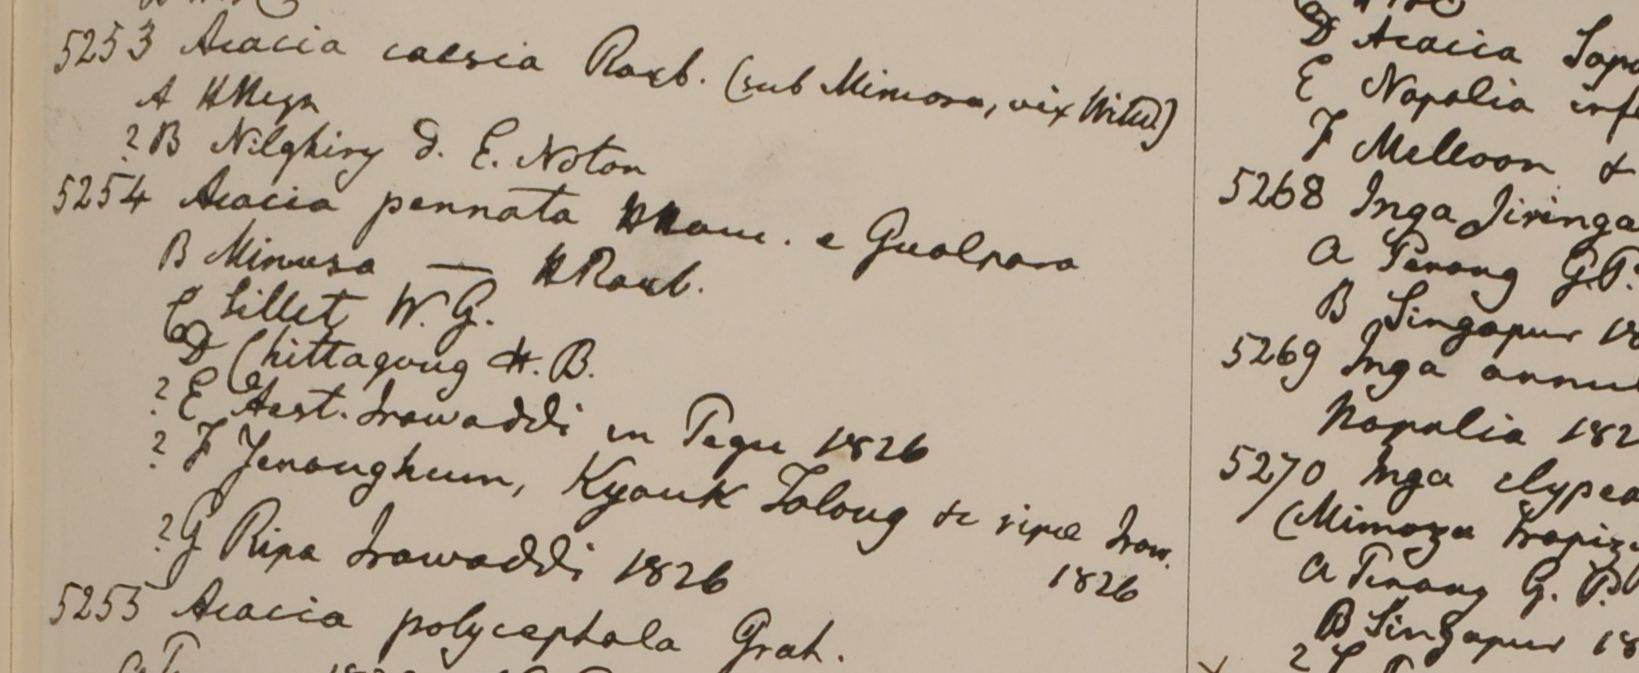 5253 Acacia caesia Roxb. (sub Mimosa, vix Willd.)
A H Heyn
? B Nilghiry d. E. Noton
5254 Acacia pennata HHam. e Gualpara
B Mimosa — HRoxb.
C Sillet W. G.
D Chittagong H. B.
? E Aest. Irawaddi in Pegu 1826
? F Jenanghuum, Kyouk Toloug & ripae Iraw. 1826
? G Ripa Irawaddi 1826
5255 Acacia polycephala Grah.
D Acacia
E Napalia
F Melloon &
5268 Inga Jiringa
a Penang G.P.
B Singapur
5269 Inga
Napalia 182
5270 Inga
(Mimoza
a Penang G. P.
B Singapur 18